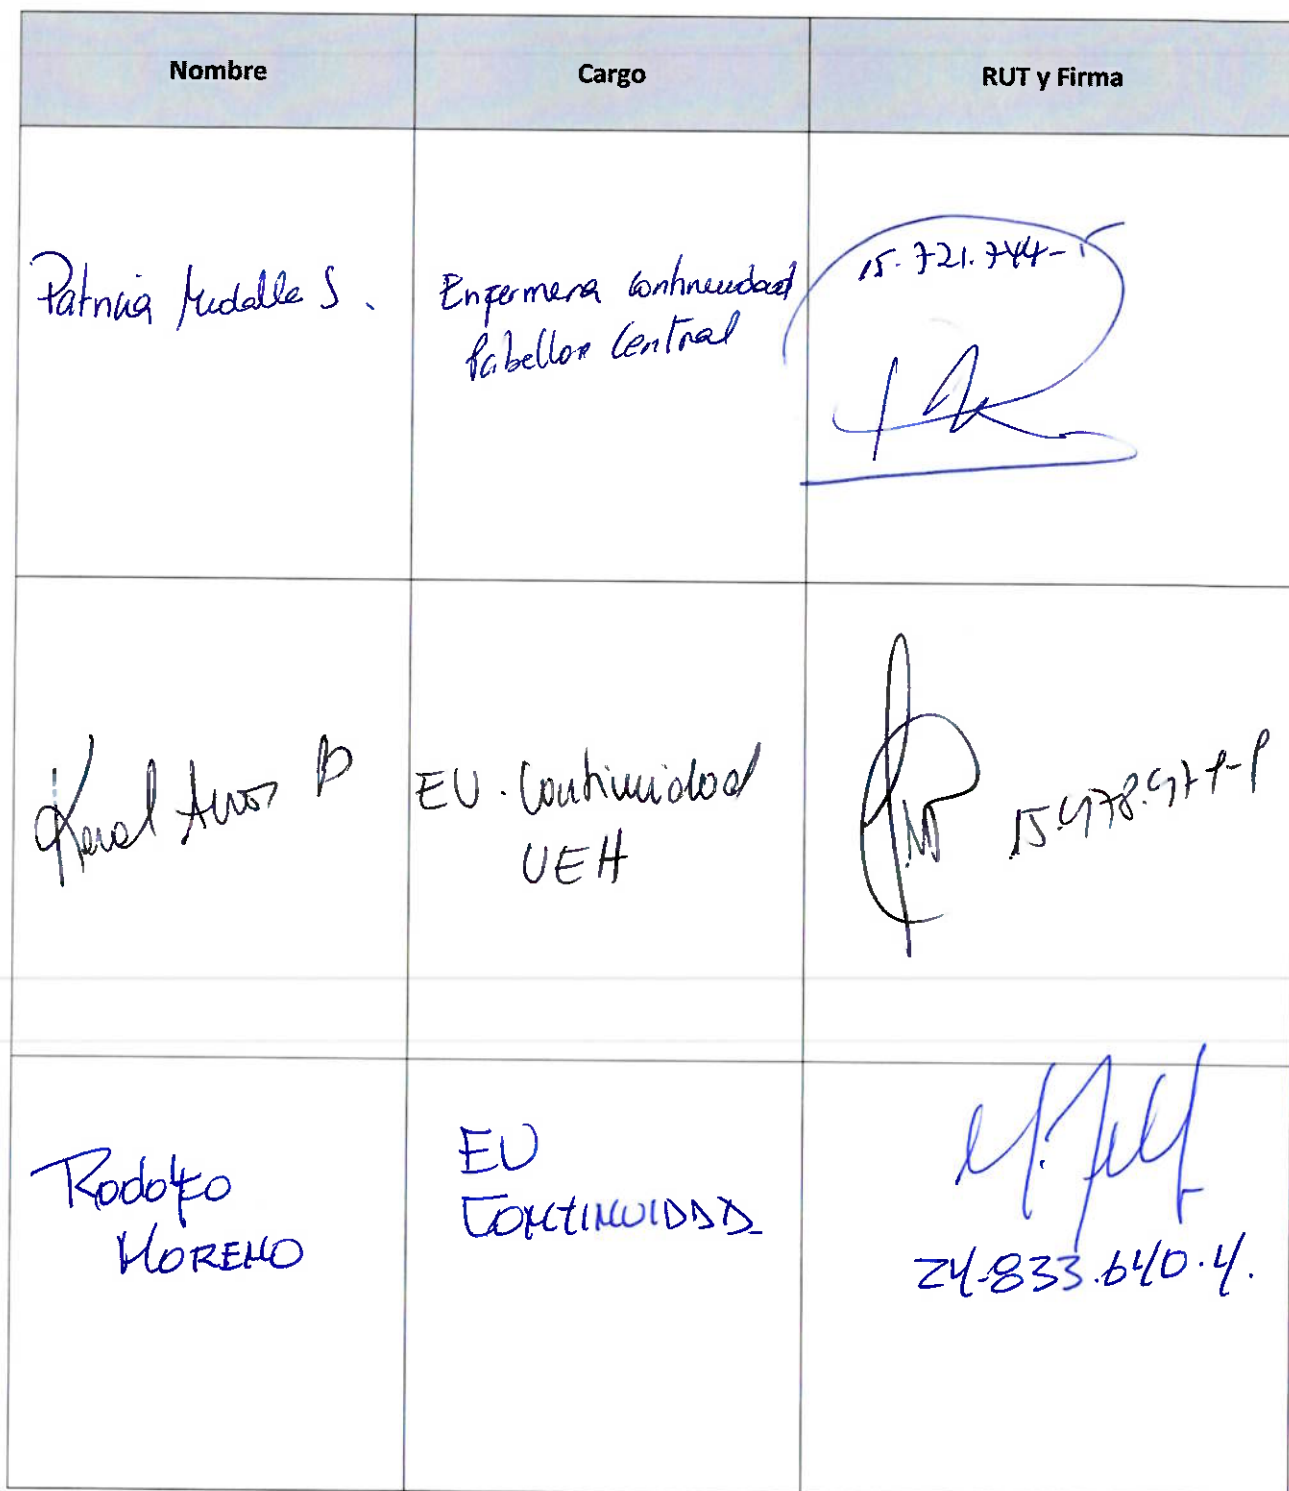 Nombre
Cargo
RUT y Firma
Patricia S.
Enfermera continuidad
Pabellon Central
15.721.744-
EU. Continuidad
UEH
Rodolfo
MORENO
EU
CONTINUIDAD
24.833.640.4.